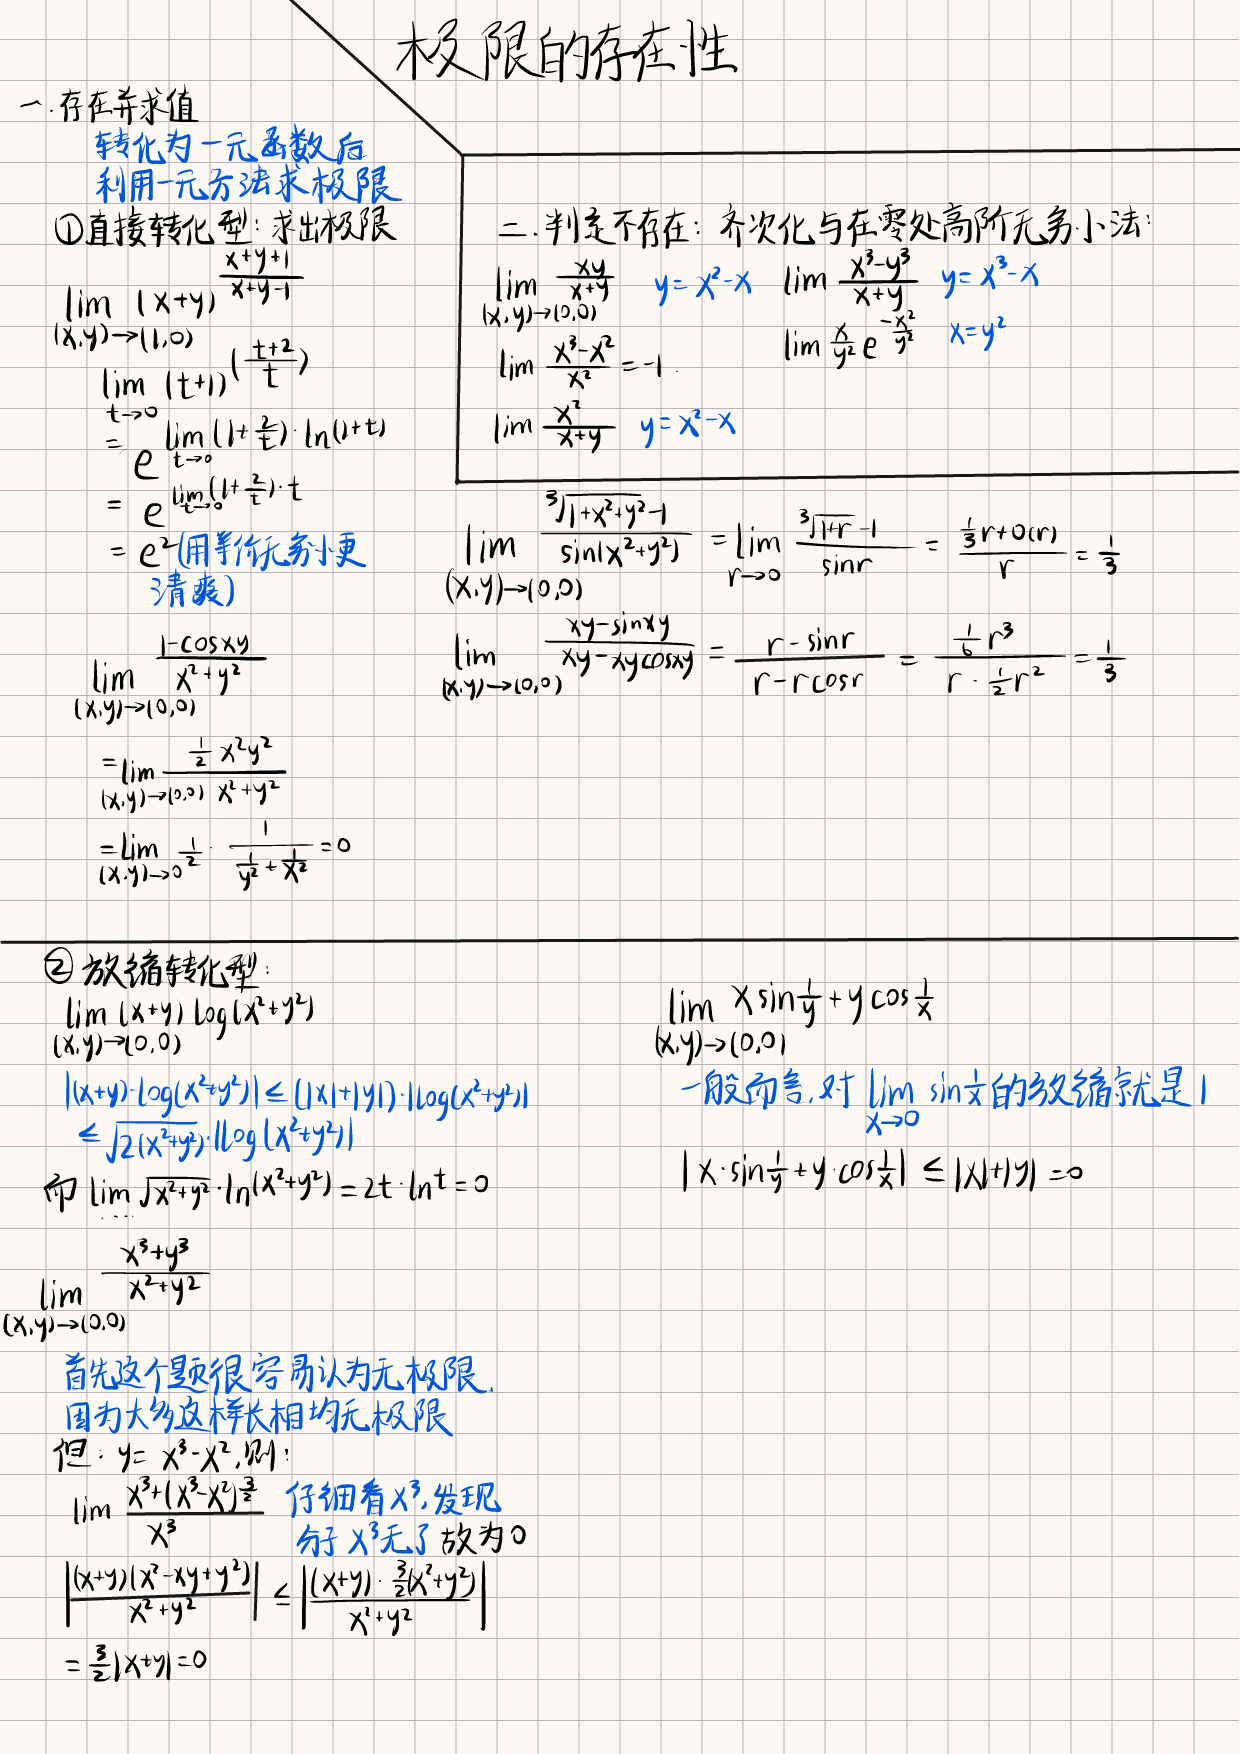 极限的存在性
一.存在并求值
转化为一元函数后
利用一元方法求极限
①直接转化型:求出极限
lim_{(x,y)→(1,0)} (x+y)^{\frac{x+y+1}{x+y-1}}
lim_{t→0} (t+1)^{(\frac{t+2}{t})}
= e^{lim_{t→0} (1+\frac{2}{t})·ln(1+t)}
= e^{lim_{t→0} (1+\frac{2}{t})·t}
= e² (用等价无穷小更
清爽)
lim_{(x,y)→(0,0)} \frac{1-cosxy}{x²+y²}
= lim_{(x,y)→(0,0)} \frac{\frac{1}{2}x²y²}{x²+y²}
= lim_{(x,y)→0} \frac{1}{2}·\frac{1}{\frac{1}{y²}+\frac{1}{x²}} = 0
二.判定不存在:齐次化与在零处高阶无穷小法:
lim_{(x,y)→(0,0)} \frac{xy}{x+y} y=x²-x
lim \frac{x³-x²}{x²} = -1.
lim \frac{x²}{x+y} y=x²-x
lim \frac{x³-y³}{x+y} y=x³-x
lim \frac{x}{y²} e^{-\frac{x²}{y²}} x=y²
lim_{(x,y)→(0,0)} \frac{\sqrt[3]{1+x²+y²}-1}{sin(x²+y²)} = lim_{r→0} \frac{\sqrt[3]{1+r}-1}{sinr} = \frac{\frac{1}{3}r+o(r)}{r} = \frac{1}{3}
lim_{(x,y)→(0,0)} \frac{xy-sinxy}{xy-xycosxy} = \frac{r-sinr}{r-rcosr} = \frac{\frac{1}{6}r³}{r·\frac{1}{2}r²} = \frac{1}{3}
②放缩转化型:
lim_{(x,y)→(0,0)} (x+y) log(x²+y²)
|(x+y)·log(x²+y²)| ≤ (|x|+|y|)·|log(x²+y²)|
≤ \sqrt{2(x²+y²)}·|log(x²+y²)|
而 lim \sqrt{x²+y²}·ln(x²+y²) = 2t·ln^t = 0
lim_{(x,y)→(0,0)} \frac{x³+y³}{x²+y²}
首先这个题很容易认为无极限,
因为大多这样长相均无极限
但: y= x³-x²,则:
lim \frac{x³+(x³-x²)^{\frac{3}{2}}}{x³} 仔细看x³,发现
分子x³无了 故为0
|\frac{(x+y)(x²-xy+y²)}{x²+y²}| ≤ |\frac{(x+y)·\frac{3}{2}(x²+y²)}{x²+y²}|
= \frac{3}{2}|x+y| = 0
lim_{(x,y)→(0,0)} x sin\frac{1}{y} + y cos\frac{1}{x}
一般而言,对 lim_{x→0} sin\frac{1}{x} 的放缩就是1
|x·sin\frac{1}{y} + y·cos\frac{1}{x}| ≤ |x|+|y| = 0